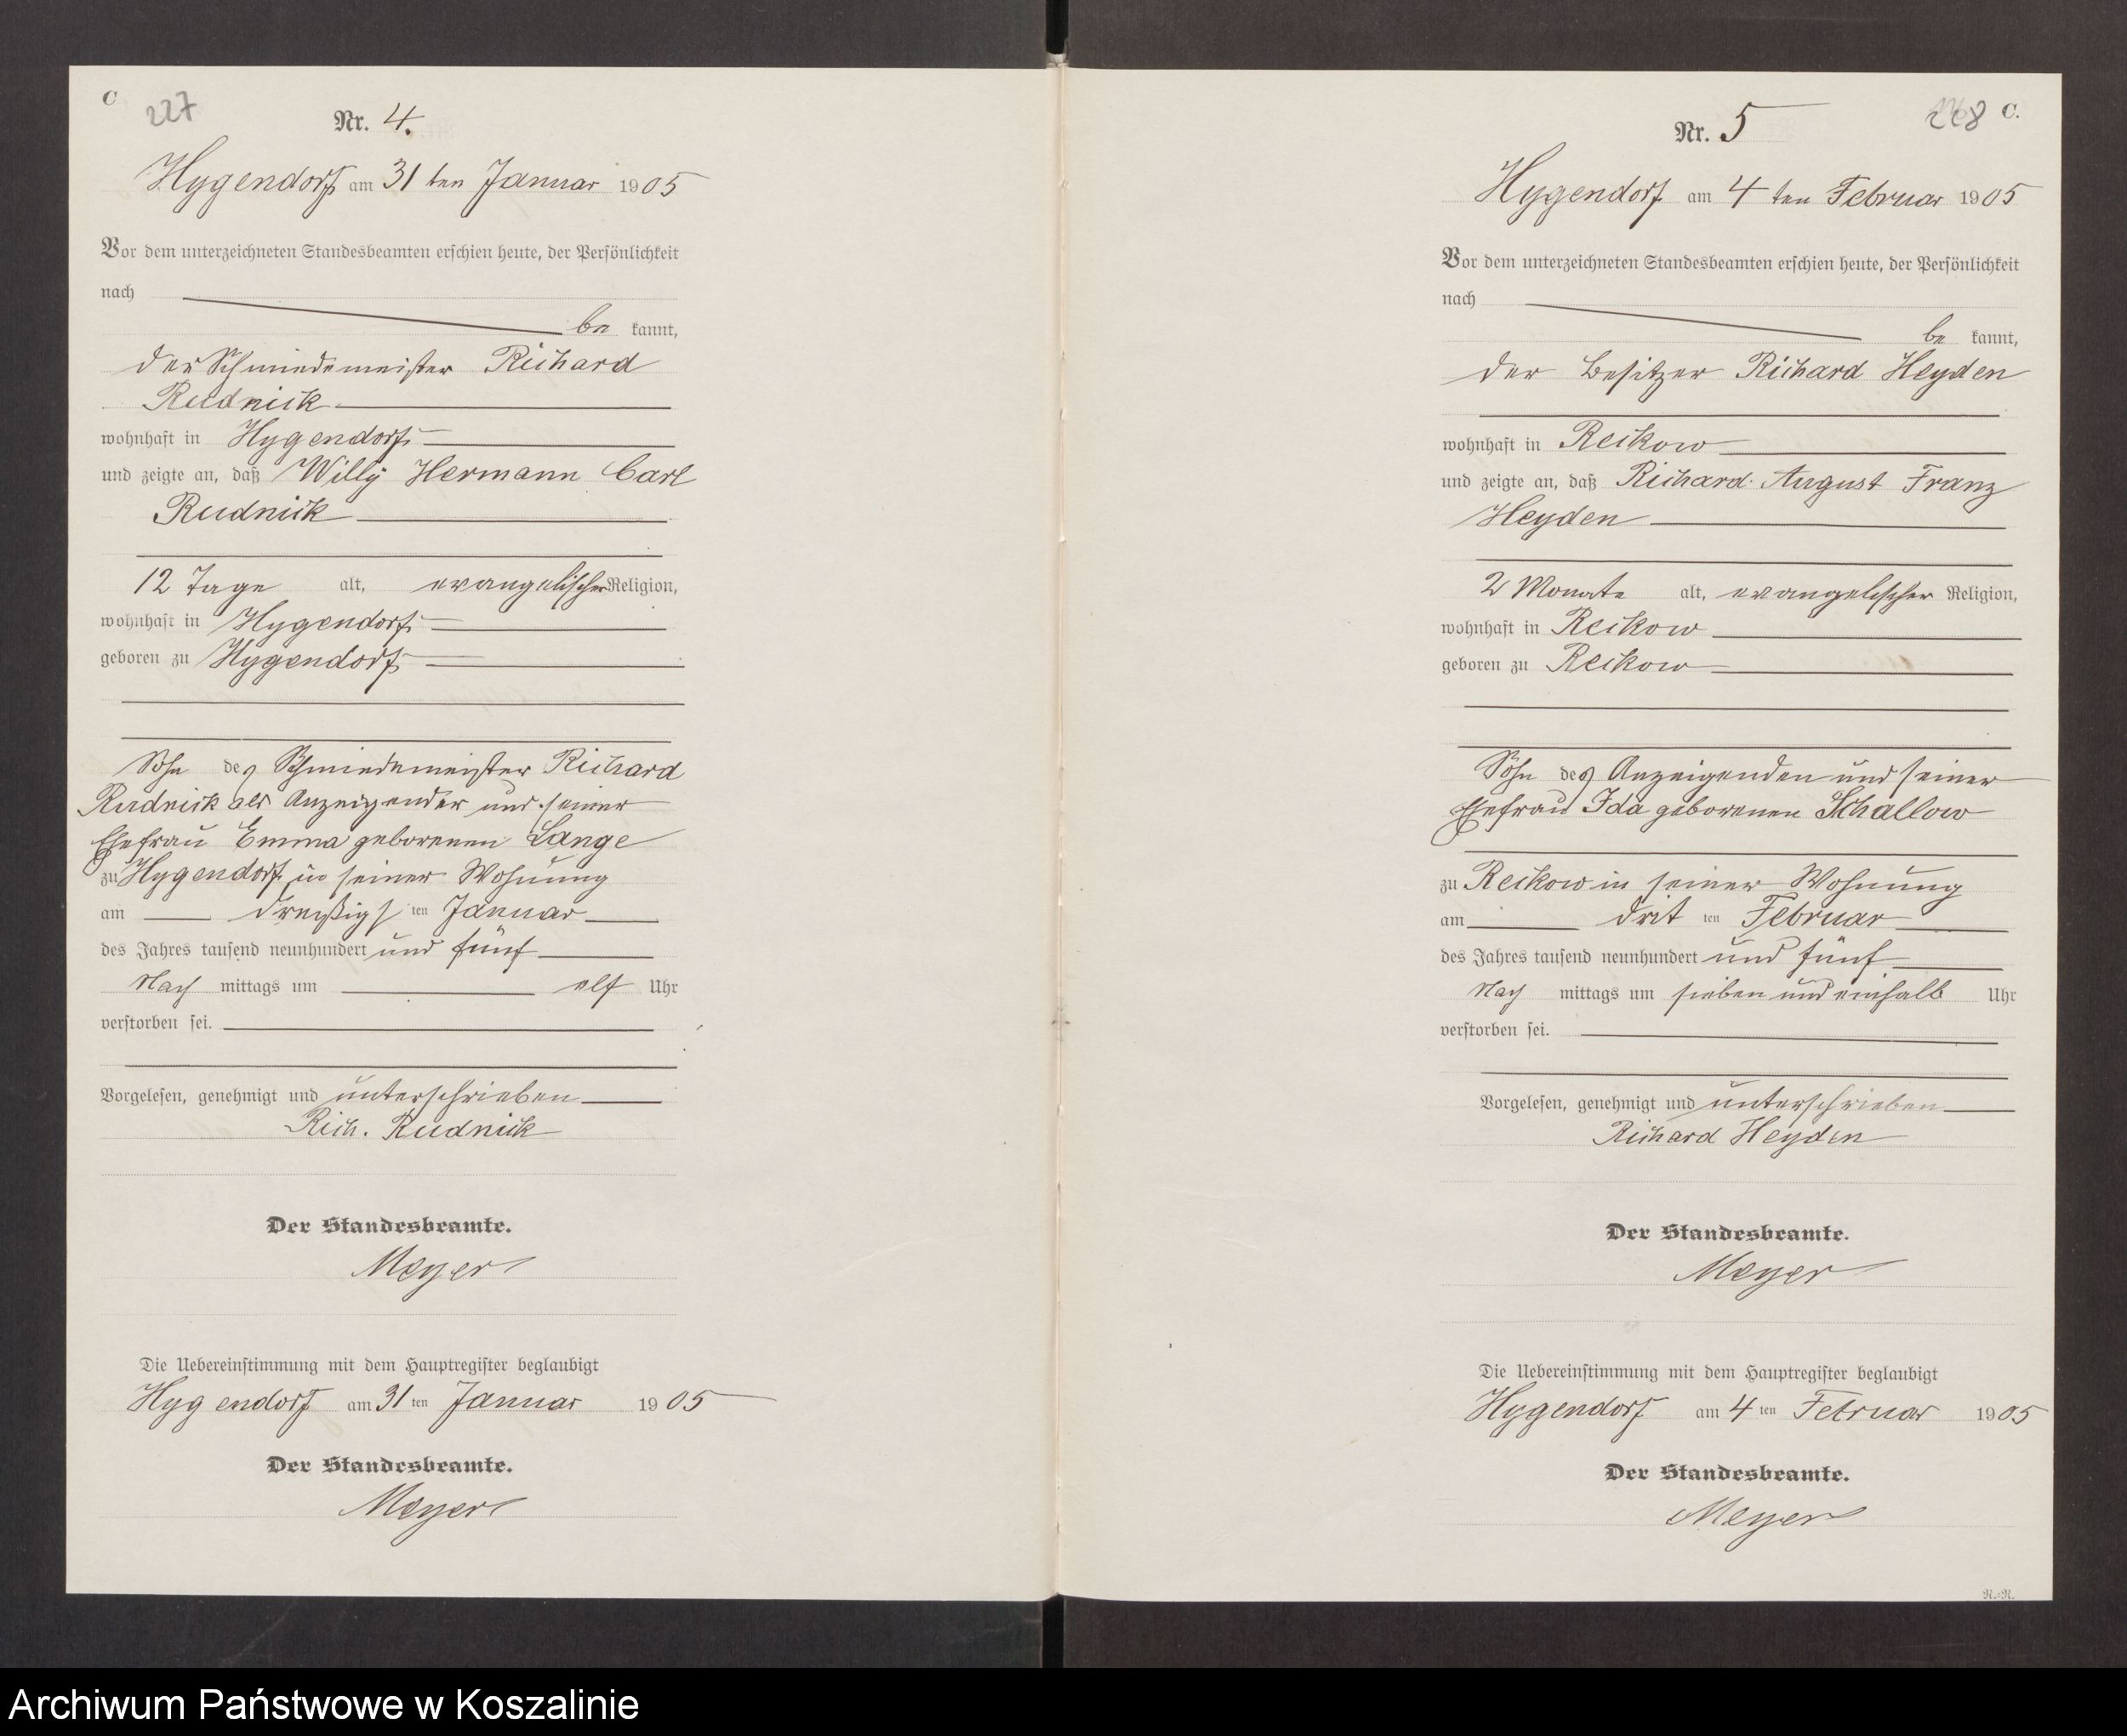 C
227
Nr. 4.
Hygendorf am 31 ten Januar 1905
Vor dem unterzeichneten Standesbeamten erschien heute, der Persönlichkeit
nach
be kannt,
der Schmiedemeister Richard
Rudnick
wohnhaft in Hygendorf
und zeigte an, daß Willy Hermann Carl
Rudnick
12 Tage alt, evangelischer Religion,
wohnhaft in Hygendorf
geboren zu Hygendorf
Sohn des Schmiedemeister Richard
Rudnick als Anzeigender und seiner
Ehefrau Emma geborenen Lange
zu Hygendorf in seiner Wohnung
am dreißigs ten Januar
des Jahres tausend neunhundert und fünf
Nach mittags um elf Uhr
verstorben sei.
Vorgelesen, genehmigt und unterschrieben
Rich. Rudnick
Der Standesbeamte.
Meyer
Die Uebereinstimmung mit dem Hauptregister beglaubigt
Hygendorf am 31 ten Januar 1905
Der Standesbeamte.
Meyer
228 C.
Nr. 5
Hygendorf am 4 ten Februar 1905
Vor dem unterzeichneten Standesbeamten erschien heute, der Persönlichkeit
nach
be kannt,
der Besitzer Richard Heyden
wohnhaft in Reikow
und zeigte an, daß Richard August Franz
Heyden
2 Monate alt, evangelischer Religion,
wohnhaft in Reikow
geboren zu Reikow
Sohn des Anzeigenden und seiner
Ehefrau Ida geborenen Schallow
zu Reikow in seiner Wohnung
am drit ten Februar
des Jahres tausend neunhundert und fünf
Nach mittags um sieben und einhalb Uhr
verstorben sei.
Vorgelesen, genehmigt und unterschrieben
Richard Heyden
Der Standesbeamte.
Meyer
Die Uebereinstimmung mit dem Hauptregister beglaubigt
Hygendorf am 4 ten Februar 1905
Der Standesbeamte.
Meyer
R.-R.
Archiwum Państwowe w Koszalinie